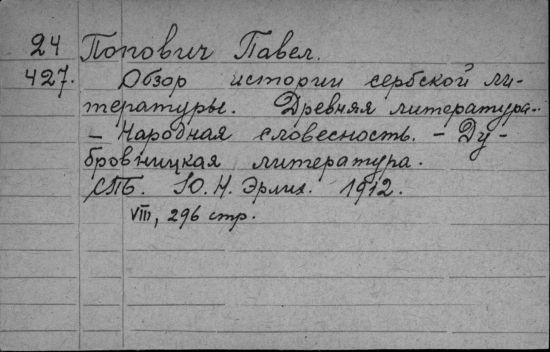 24 Попович Павел.
427. Обзор истории сербской ли-
тературы. Древняя литература.
– Народная словесность. – Ду-
бровницкая литература.
СПб. Ю. Н. Эрлих. 1912.
VIII, 296 стр.